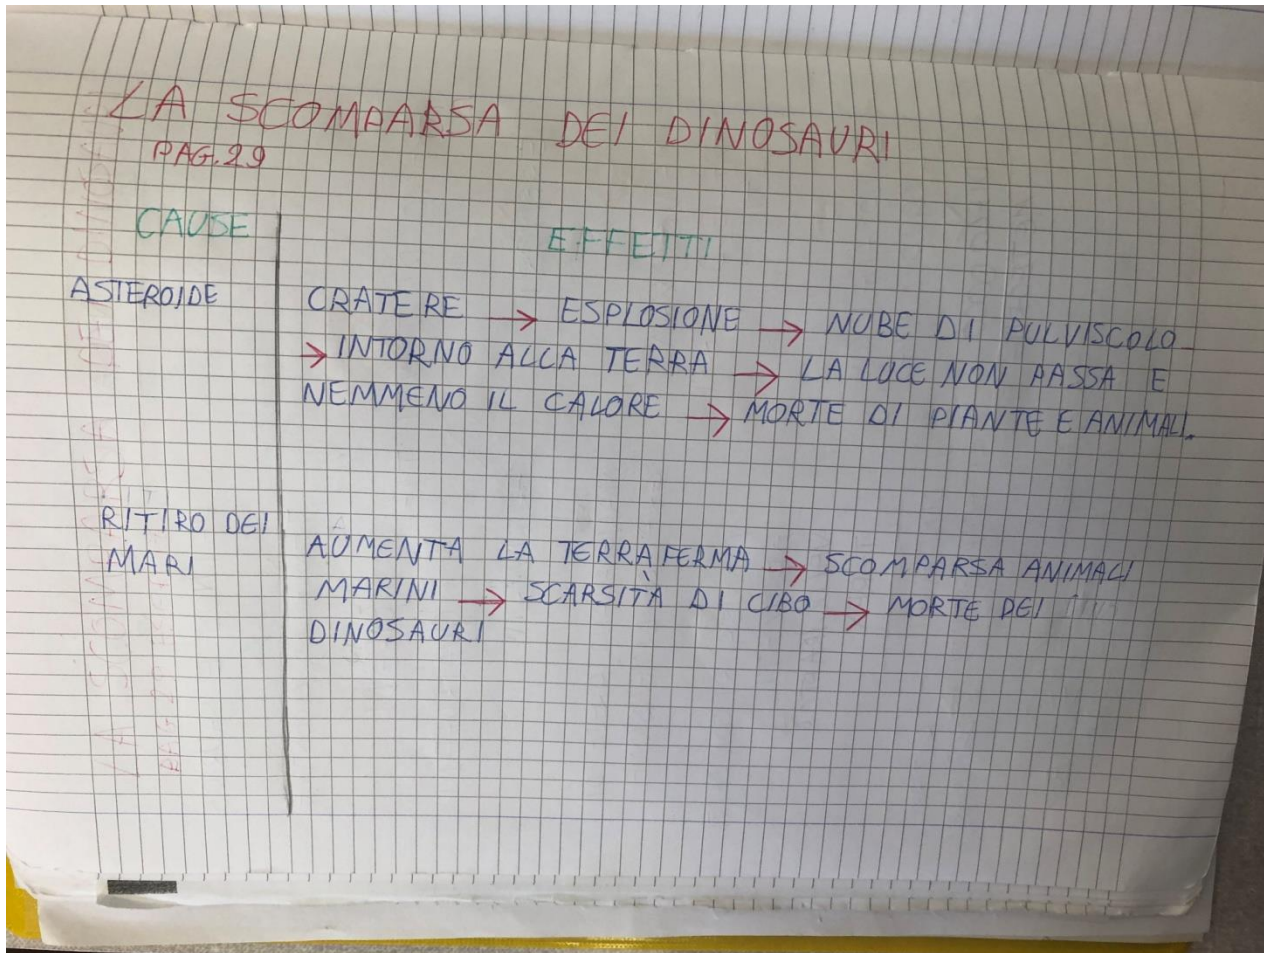 LA SCOMPARSA DEI DINOSAURI
PAG.29
CAUSE
EFFETTI
ASTEROIDE
CRATERE → ESPLOSIONE → NUBE DI PULVISCOLO
→ INTORNO ALLA TERRA → LA LUCE NON PASSA E
NEMMENO IL CALORE → MORTE DI PIANTE E ANIMALI.
RITIRO DEI
MARI
AUMENTA LA TERRAFERMA → SCOMPARSA ANIMALI
MARINI → SCARSITÀ DI CIBO → MORTE DEI
DINOSAURI